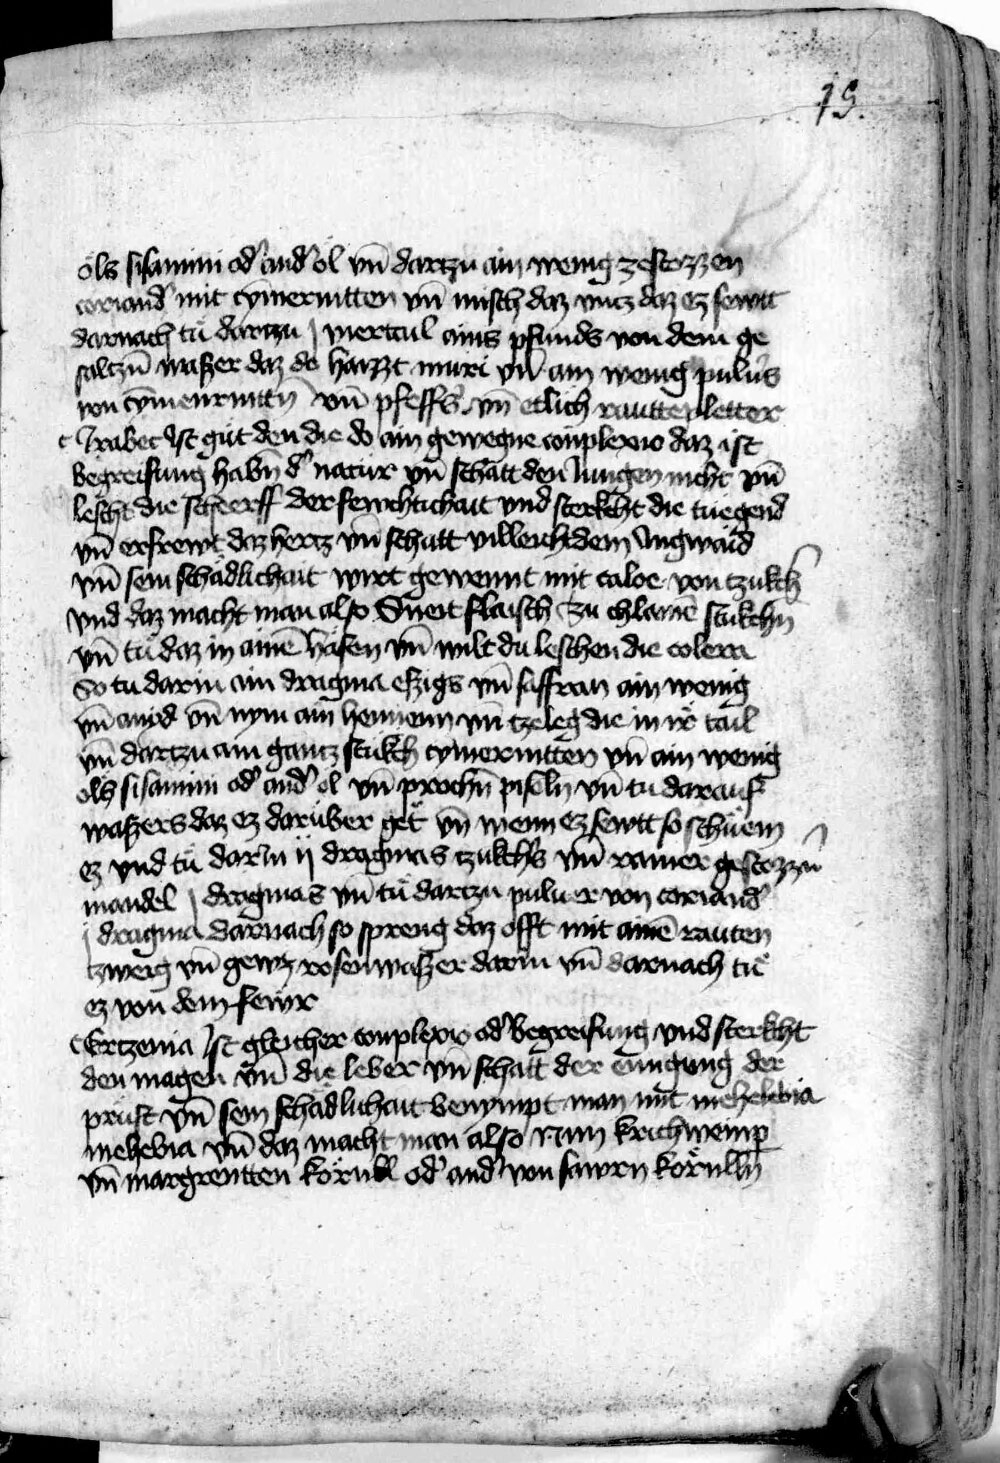 79.
öls sisamini od᾽ and᾽ öl vn̄ dartzu ain wenig zestozzen
coriand᾽ mit cymerintten vn̄ misch daz vncz daz ez sewtt
darnach tů dartzu j viertail ains pfunds von dem ge
saltzn̄ waßzer daz do haizzt muri vn̄ ain wenig puluers
von cymenrintn̄ vn̄ pfeffers vn̄ etlich rauttepletter
Jrabec Ist gůt den die do ain gewegne conplexio daz ist
begreifung habn̄ d᾽ natur vn̄ schatt den Jungen nicht vn̄
lescht die scheerff der fewchtichait vnd sterkcht die tuegend
vn̄ erfrewt daz hertz vn̄ schatt villeicht dem Ingwaid
vn̄ sein schädlichait wirt gewennt mit caloe von tzukch᾽
vnd daz macht man also Sneit flaisch Zu chlainē stukchn
vn̄ tů daz in ainē häfen vn̄ wilt du leschen die colera
So tu darin ain dragma eßzigs vn̄ saffran ain wenig
vn̄ amid vn̄ nym ain hennenn vn̄ tzeleg die in ir tail
vn̄ dartzu ain gantz stukch cymerintten vn̄ ain wenig
öls sisamini od᾽ and᾽ öl vn̄ prochn̄ piseln vn̄ tu darauf
waßzers daz ez darüber get vn̄ wenn ez sewtt so schüem
ez vnd tů darin ij dragmas tzukchers vn̄ rainer gestozzn̄
mandel j dragmas vn̄ tů dartzu puluer von coriand᾽
j dragma darnach so spreng daz offt mit ainē rauten
tzweig vn̄ gewz rosenwaßzer darin vn̄ darnach tů
ez von dem fewr
Ertzenia Ist gleicher conplexio od᾽ begreifung vnd sterkcht
den magen vn̄ die leber vn̄ schatt der ennigung der
prüst vn̄ sein schädlichait benympt man mit mehelebia
mehebia vn̄ daz macht man also Nim krichweinp
vn̄ margrentten körndl od᾽ and᾽ von sawrn körnlln